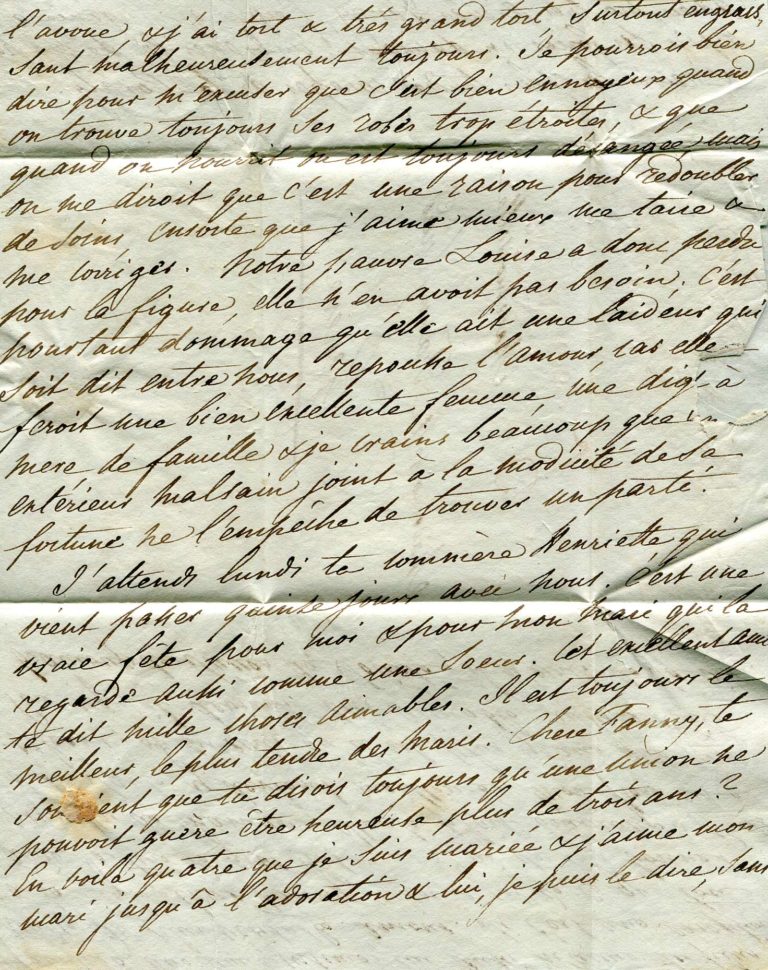 l'avoue & j'ai tort & très grand tort surtout engrais-
sant malheureusement toujours. Je pourrois bien
dire pour m'excuser que c'est bien ennuyeux quand
on trouve toujours ses robes trop étroites, & que
quand on nourrit on est toujours dérangée, mais
on me diroit que c'est une raison pour redoubler
de soins ensorte que j'aime mieux me taire &
me corriger. Notre pauvre Louise a donc perdu
pour la figure, elle n'en avoit pas besoin. C'est
pourtant dommage qu'elle ait une laideur qui
soit dit entre nous, repousse l'amour car elle
feroit une bien excellente femme une digne
mere de famille & je crains beaucoup que
extérieur malsain joint à la modicité de sa
fortune ne l'empêche de trouver un parti.
J'attends lundi ta commère Henriette qui
vient passer quinze jours avec nous. C'est une
vraie fête pour moi & pour mon mari qui la
regarde aussi comme une Soeur. Cet excellent ami
te dit mille choses aimables. Il est toujours le
meilleur, le plus tendre des maris. Chere Fanny, te
souvient que tu disois toujours qu'une union ne
pouvoit guere être heureuse plus de trois ans?
En voilà quatre que je suis mariée & j'aime mon
mari jusqu'à l'adoration & lui, je puis le dire, sans